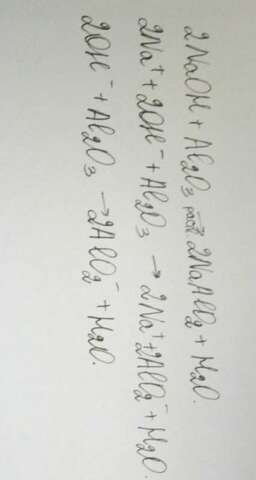 2NaOH + Al₂O₃ →раст 2NaAlO₂ + H₂O.
2Na⁺ + 2OH⁻ + Al₂O₃ → 2Na⁺ + 2AlO₂⁻ + H₂O.
2OH⁻ + Al₂O₃ → 2AlO₂⁻ + H₂O.